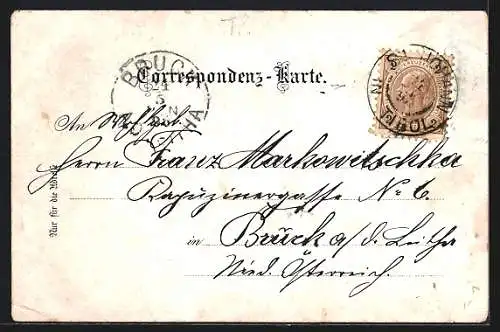 Correspondenz-Karte.
BRUCK
24
5
An
Herrn Franz Markowitschka
Kapuzinergasse No 6.
in Bruck a/d. Leitha
Nied. Österreich.
Nur für die Adresse
TIROL